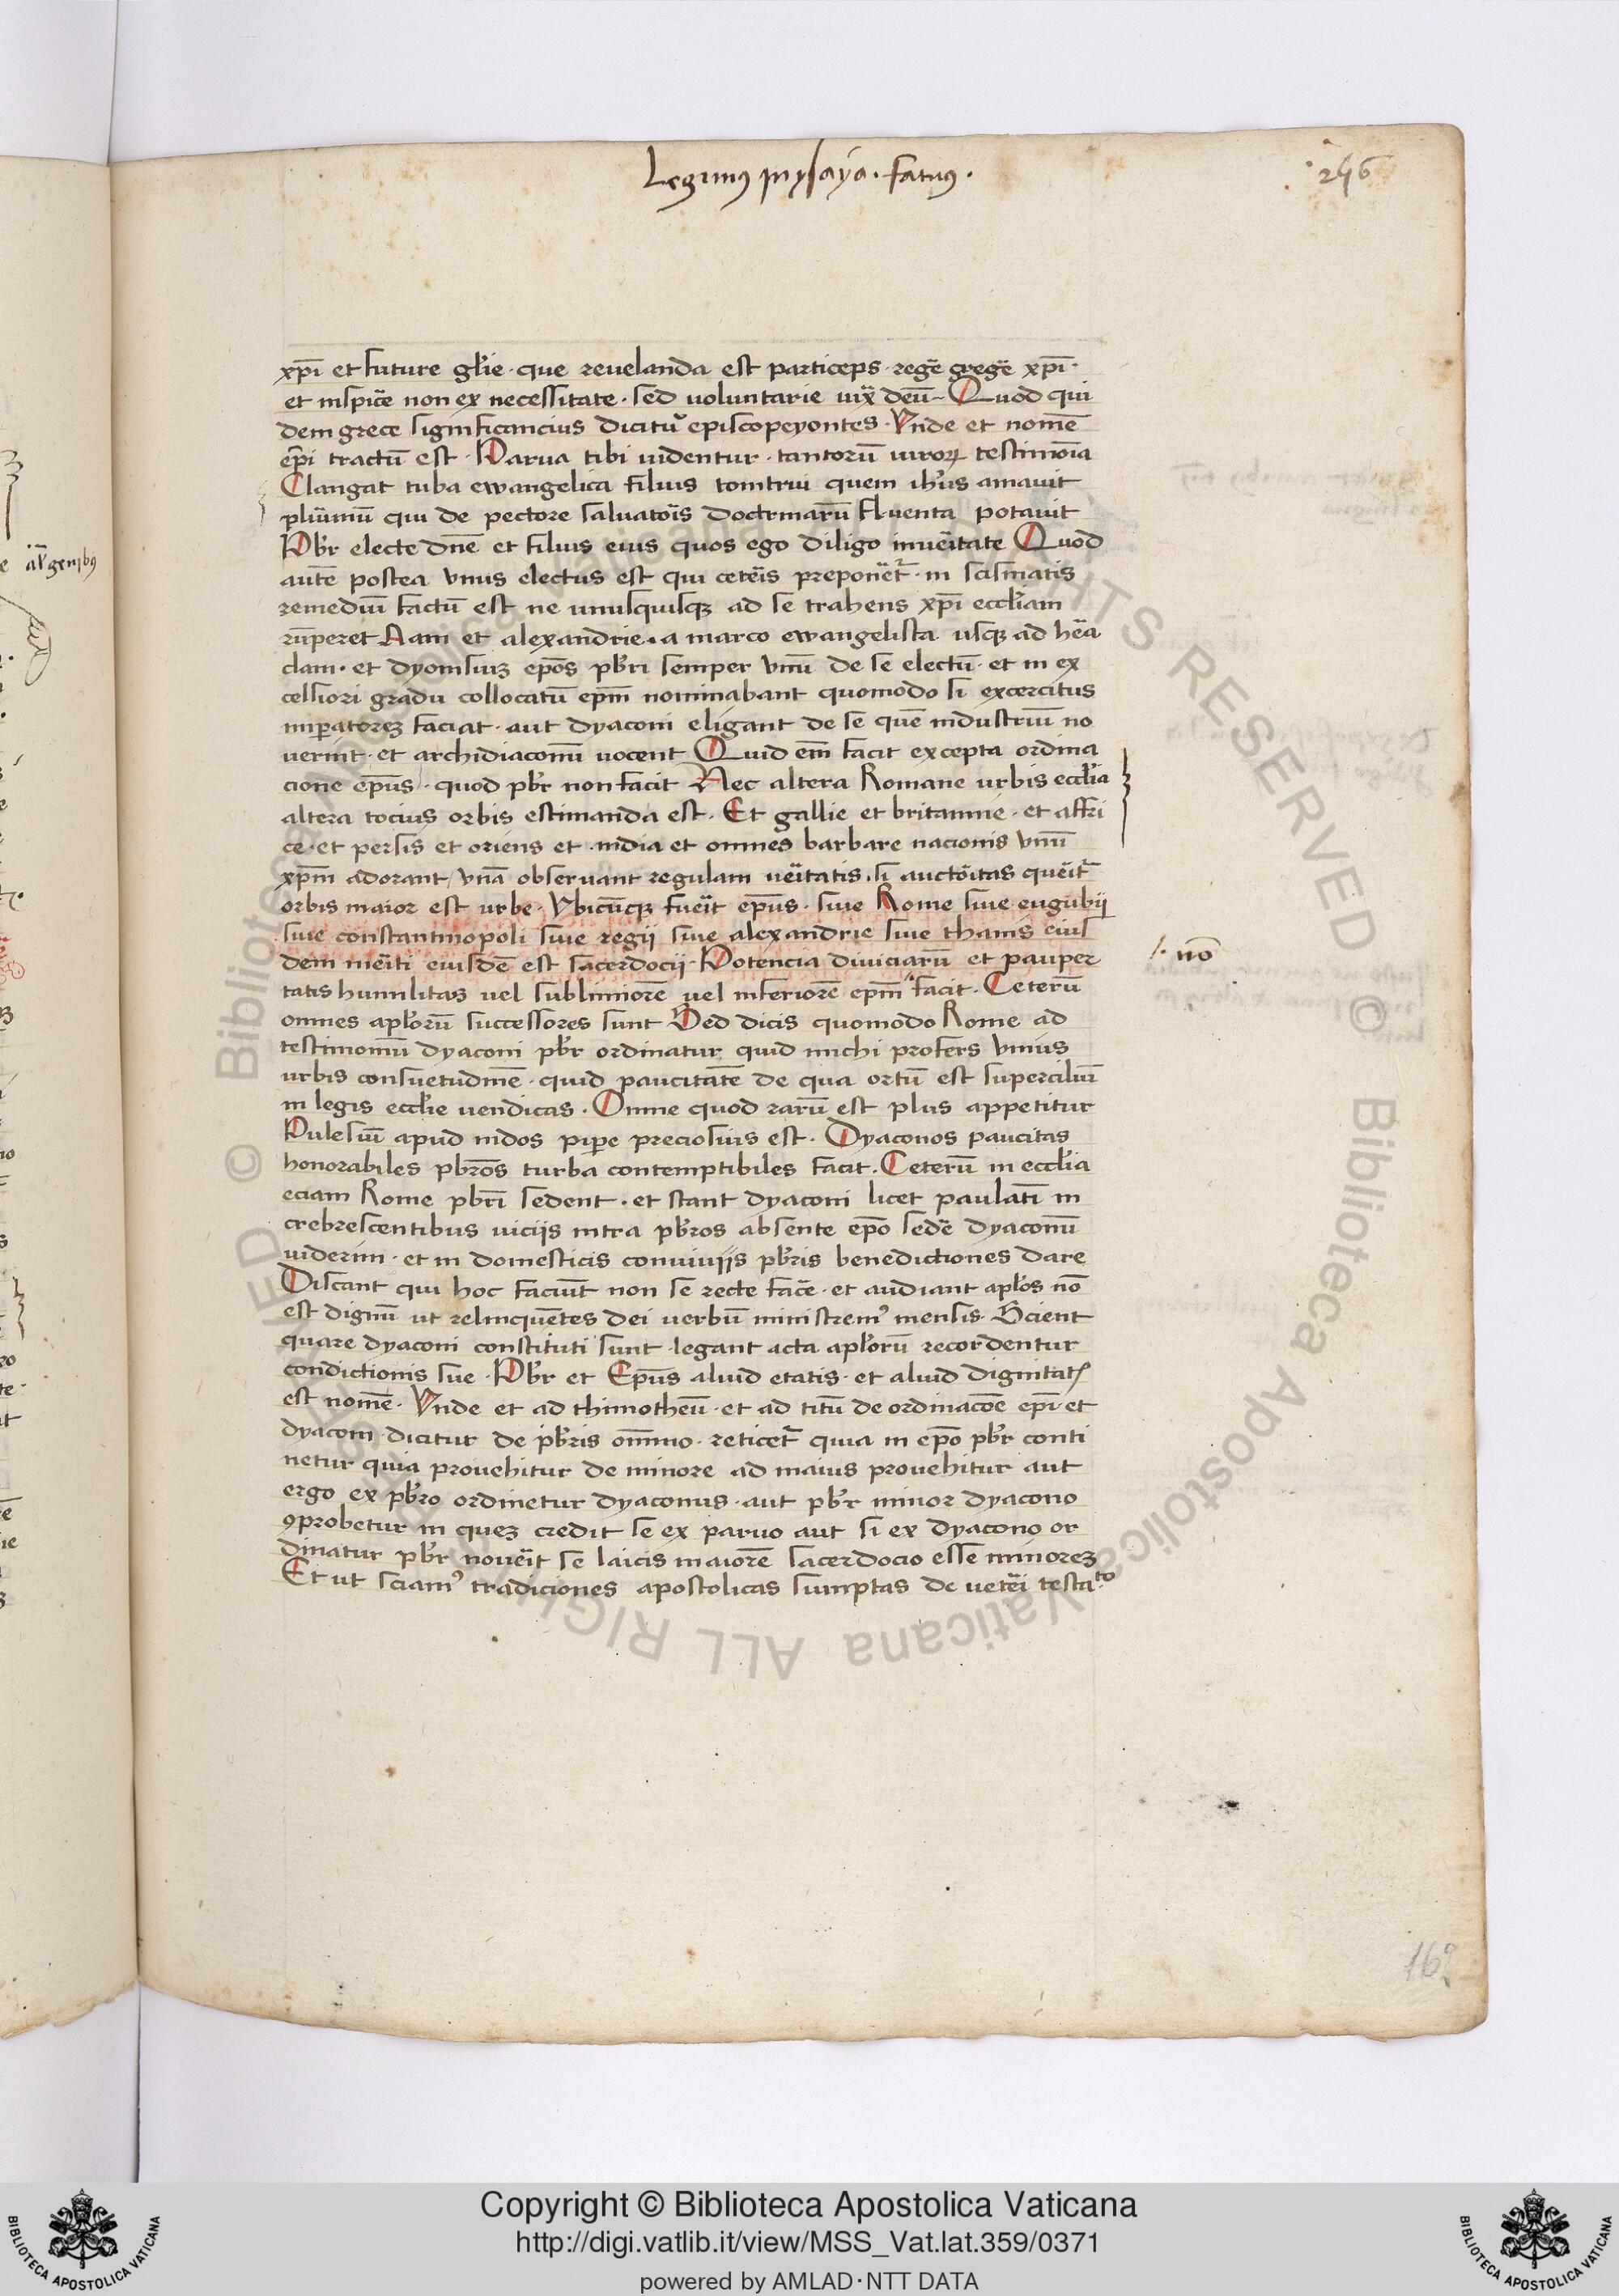 Legimus in ysaya. fatuus.
246
xp̄i et future gl̄ie · que reuelanda est particeps · regē gregē xp̄i ·
et inspicē non ex necessitate · sed uoluntarie iux̄ deū - Quod qui
dem grece significancius dicitur episcopeyontes · Vnde et nomē
ep̄i tractū est · Parua tibi uidentur · tantorū uiroꝝ testimoīa
Clangat tuba ewangelica filius tonitrui quem ih̄us amauit
plūimū qui de pectore saluatoīs doctrinarū fluenta potauit
Pb̄r electe dn̄e et filiis eius quos ego diligo in uēitate Quod
autē postea vnus electus est qui cetēis preponēt᷑ · in scismatis
remediū factū est ne unusquisqꝫ ad se trahens xp̄i eccl̄iam
rūperet Nam et alexandrie · a marco ewangelista usqꝫ ad hēa
clam · et dyonisiuꝫ ep̄os pb̄ri semper vnū de se electū · et in ex
celsiori gradu collocatū ep̄m nominabant quomodo si excercitus
inp̄atoreꝫ faciat · aut dyaconi eligant de se quē industriū no
uerint · et archidiaconū uocent Quid em̄ facit excepta ordina
cione ep̄us · quod pb̄r non facit Nec altera Romane urbis eccl̄ia
altera tocius orbis estimanda est · Et gallie et britannie · et affri
ce · et persis et oriens et india et omnes barbare nacionis vnū
xp̄m adorant / vnā obseruant regulam uēitatis · si auctōitas quēit᷑
orbis maior est urbe · Vbicūqꝫ fuēit ep̄us · siue Rome siue eugubij
siue constantinopoli siue regij siue alexandrie siue thanis eius
dem mēiti eiusdē est sacerdocij · Potencia diuiciarū et pauper
tatis humilitas uel sublimiorē uel inferiorē ep̄m facit · Ceterū
omnes apl̄orū successores sunt Sed dicis quomodo Rome ad
testimoniū dyaconi pb̄r ordinatur quid michi profers vnius
urbis consuetudinē · quid paucitatē de qua ortū est superciliū
in legis eccl̄ie uendicas · Omne quod rarū est plus appetitur
Pulesiū apud indos pip̄e preciosius est · Dyaconos paucitas
honorabiles pb̄ros turba contemptibiles facit · Ceterū in eccl̄ia
eciam Rome pb̄ri sedent · et stant dyaconi licet paulatī in
crebrescentibus uiciis intra pb̄ros absente ep̄o sedē dyaconū
uiderim · et in domesticis conuiuijs pb̄ris benedictiones dare
Discant qui hoc faciūt non se recte facē · et audiant apl̄os nō
est dignū ut relinquētes dei uerbū ministremꝰ mensis · Scient
quare dyaconi constituti sunt · legant acta apl̄orū recordentur
condictionis sue · Pb̄r et Ep̄us aliud etatis · et aliud dignitatꝭ
est nomē · Vnde et ad thimotheū · et ad titū de ordinacōe ep̄i · et
dyaconi dicitur de pb̄ris om̄ino · reticet᷑ quia in ep̄o pb̄r conti
netur quia prouehitur de minore ad maius prouehitur aut
ergo ex pb̄ro ordinetur dyaconus · aut pb̄r minor dyacono
ꝯprobetur in queꝫ credit se ex paruo aut si ex dyacono or
dinatur pb̄r nouēit se laicis maiorē sacerdocio esse minoreꝫ
Et ut sciamꝰ tradiciones apostolicas sumptas de uetēi testa.to
/. nō
162
Copyright © Biblioteca Apostolica Vaticana
http://digi.vatlib.it/view/MSS_Vat.lat.359/0371
powered by AMLAD·NTT DATA
BIBLIOTECA APOSTOLICA VATICANA
BIBLIOTECA APOSTOLICA VATICANA